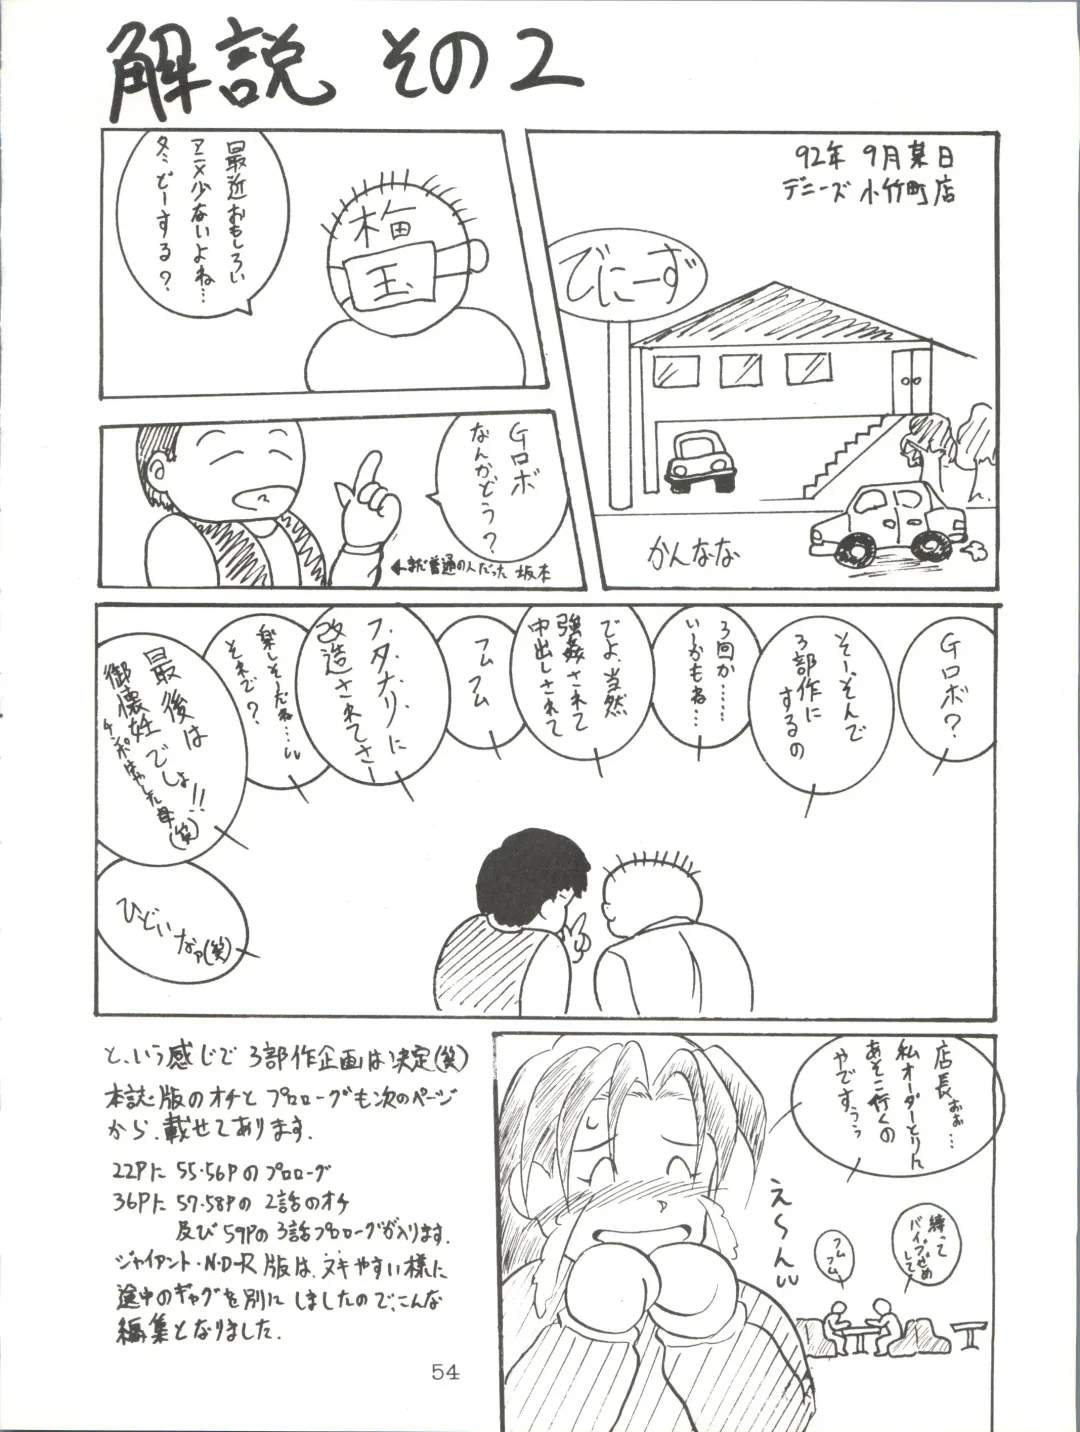 解説 その2
92年 9月某日
デニーズ 小竹町店
でにーず
かんなな
最近おもしろい
アニメ少ないよね…
冬ミどーする?
梅
玉
Gロボ
なんかどう?
←まだ普通の人だった 坂本
Gロボ?
そーそんで
3部作に
するの
3回か……
いーかもね…
でよ、当然
強姦されて
中出しされて
フムフム
フ・タ・ナ・リ・に
改造されてさ
楽しそーだね…
それで?
最後は
御懐妊でしょ!!
チンポはやした母(笑)
ひ、どいなァ(笑)
という感じで 3部作企画は決定(笑)
本誌版のオチと プロローグも次のページ
から、載せてあります.
22Pに 55・56Pのプロローグ
36Pに 57・58Pの 2話のオチ
及び 59Pの 3話プロローグが入ります.
ジャイアント・N・D・R版は、ヌキやすい様に
途中のギャグを別に しましたので、こんな
編集となりました.
店長ぉぉ…
私オーダーとりに
あそこ行くの
やですぅぅ
え〜ん
縛って
バイブぜめ
して
フム
フム
54